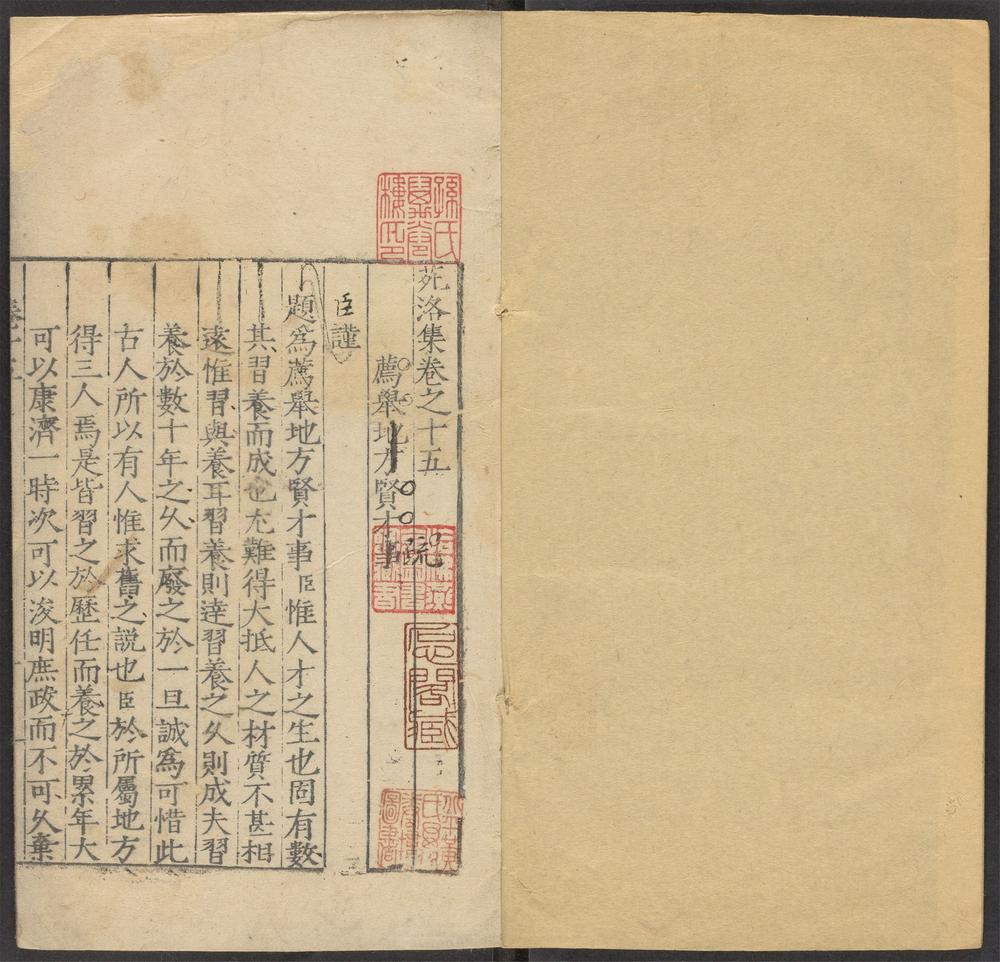 苑洛集卷之十五
薦舉地方賢才事疏
臣謹
題爲薦舉地方賢才事臣惟人才之生也固有數
其習養而成也尤難得大抵人之材質不甚相
遠惟習與養耳習養則達習養之久則成夫習
養於數十年之久而廢之於一旦誠爲可惜此
古人所以有人惟求舊之説也臣於所屬地方
得三人焉是皆習之於歷任而養之於累年大
可以康濟一時次可以浚明庶政而不可久棄